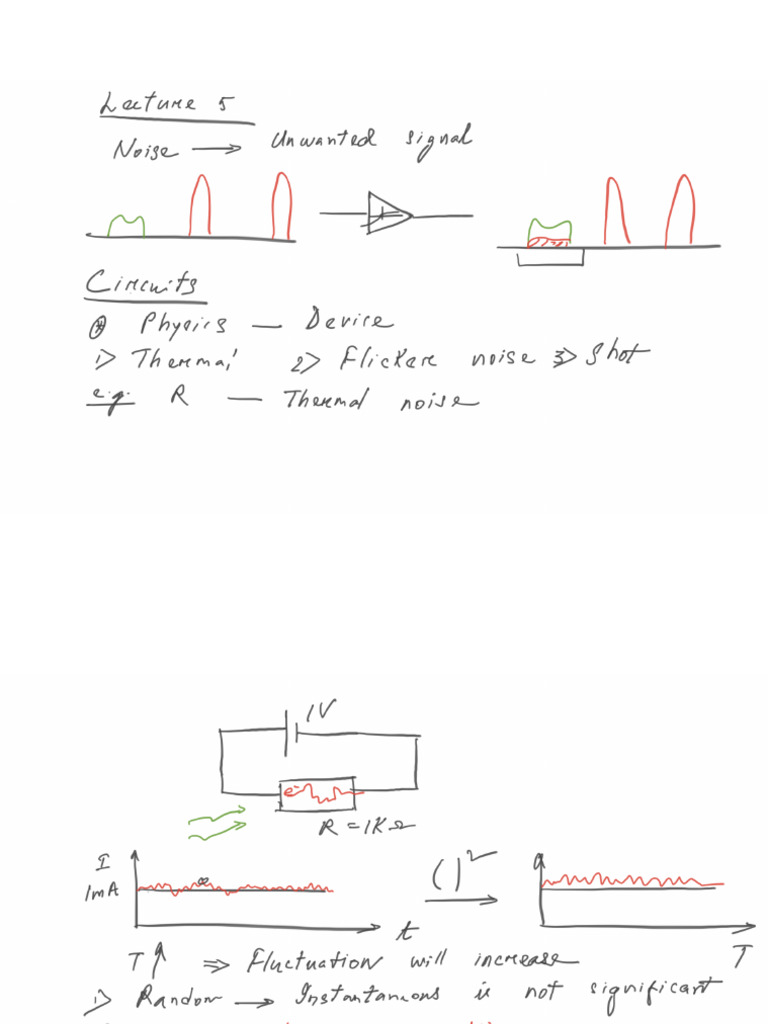 Lecture 5
Noise → Unwanted signal
Circuits
⊛ Physics — Device
1> Thermal 2> Flicker noise 3> Shot
e.g. R — Thermal noise
1V
e⁻
R = 1KΩ
I
1mA
t
( )²
T
T↑ ⇒ Fluctuation will increase
1> Random → Instantaneous is not significant